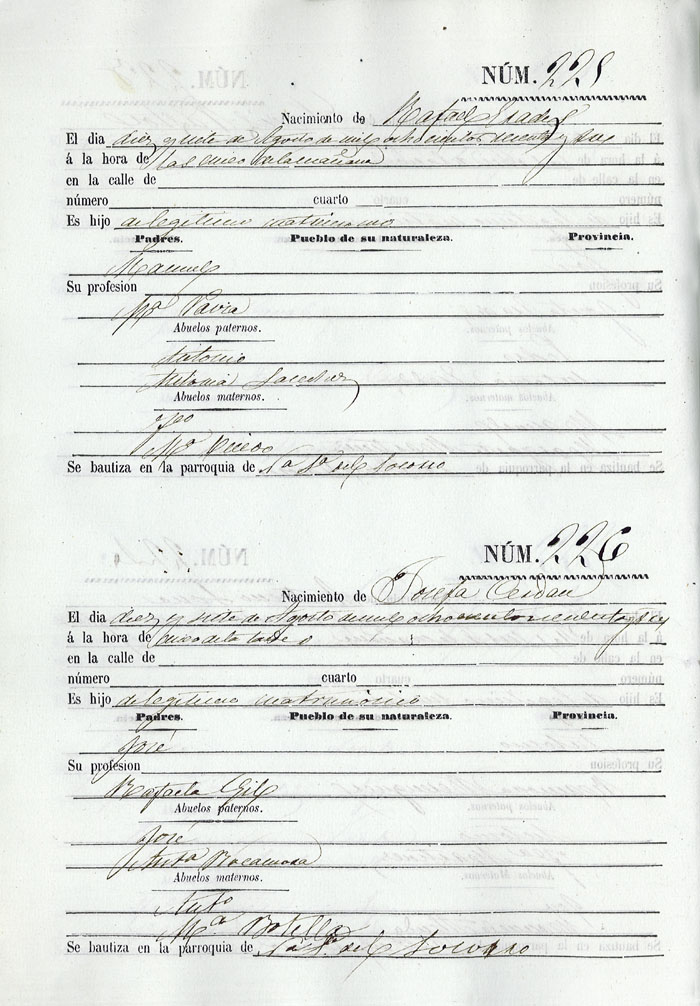 NÚM. 225
Nacimiento de Rafael
El dia diez y siete de Agosto de mil ochocientos sesenta y seis
á la hora de las cinco de la mañana
en la calle de
número cuarto
Es hijo de legitimo matrimonio
Padres. Pueblo de su naturaleza. Provincia.
Manuel
Su profesion
Mª
Abuelos paternos.
Antonio
Antonia
Abuelos maternos.
Mª
Se bautiza en la parroquia de Nª Sª del Socorro
NÚM. 226
Nacimiento de Josefa Cerdan
El dia diez y siete de Agosto de mil ochocientos sesenta y seis
á la hora de cinco de la tarde
en la calle de
número cuarto
Es hijo de legitimo matrimonio
Padres. Pueblo de su naturaleza. Provincia.
José
Su profesion
Rafaela Gil
Abuelos paternos.
José
Antª Rocamora
Abuelos maternos.
Antº
Mª Botella
Se bautiza en la parroquia de Nª Sª del Socorro